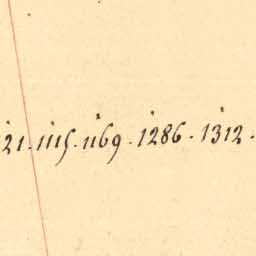 21. 1115. 1169. 1286. 1312.